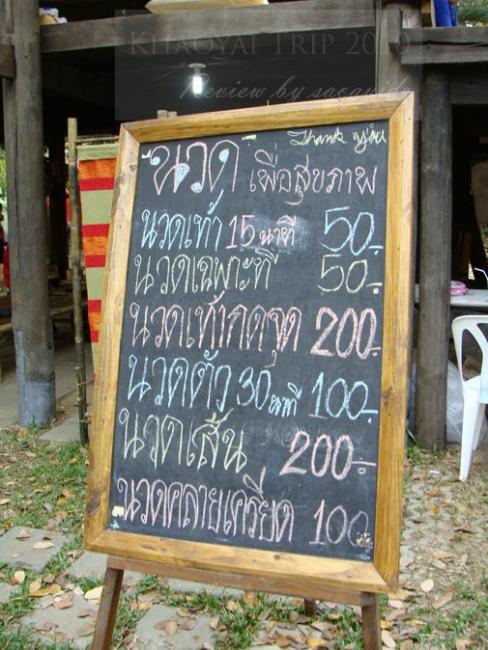 KHAOYAI TRIP 2010
Review by saoayud
Thank you
นวด เพื่อสุขภาพ
นวดเท้า 15 นาที 50.-
นวดเฉพาะที่ 50.-
นวดเท้ากดจุด 200.-
นวดตัว 30 นาที 100.-
นวดเส้น 200.-
นวดคลายเครียด 100.-